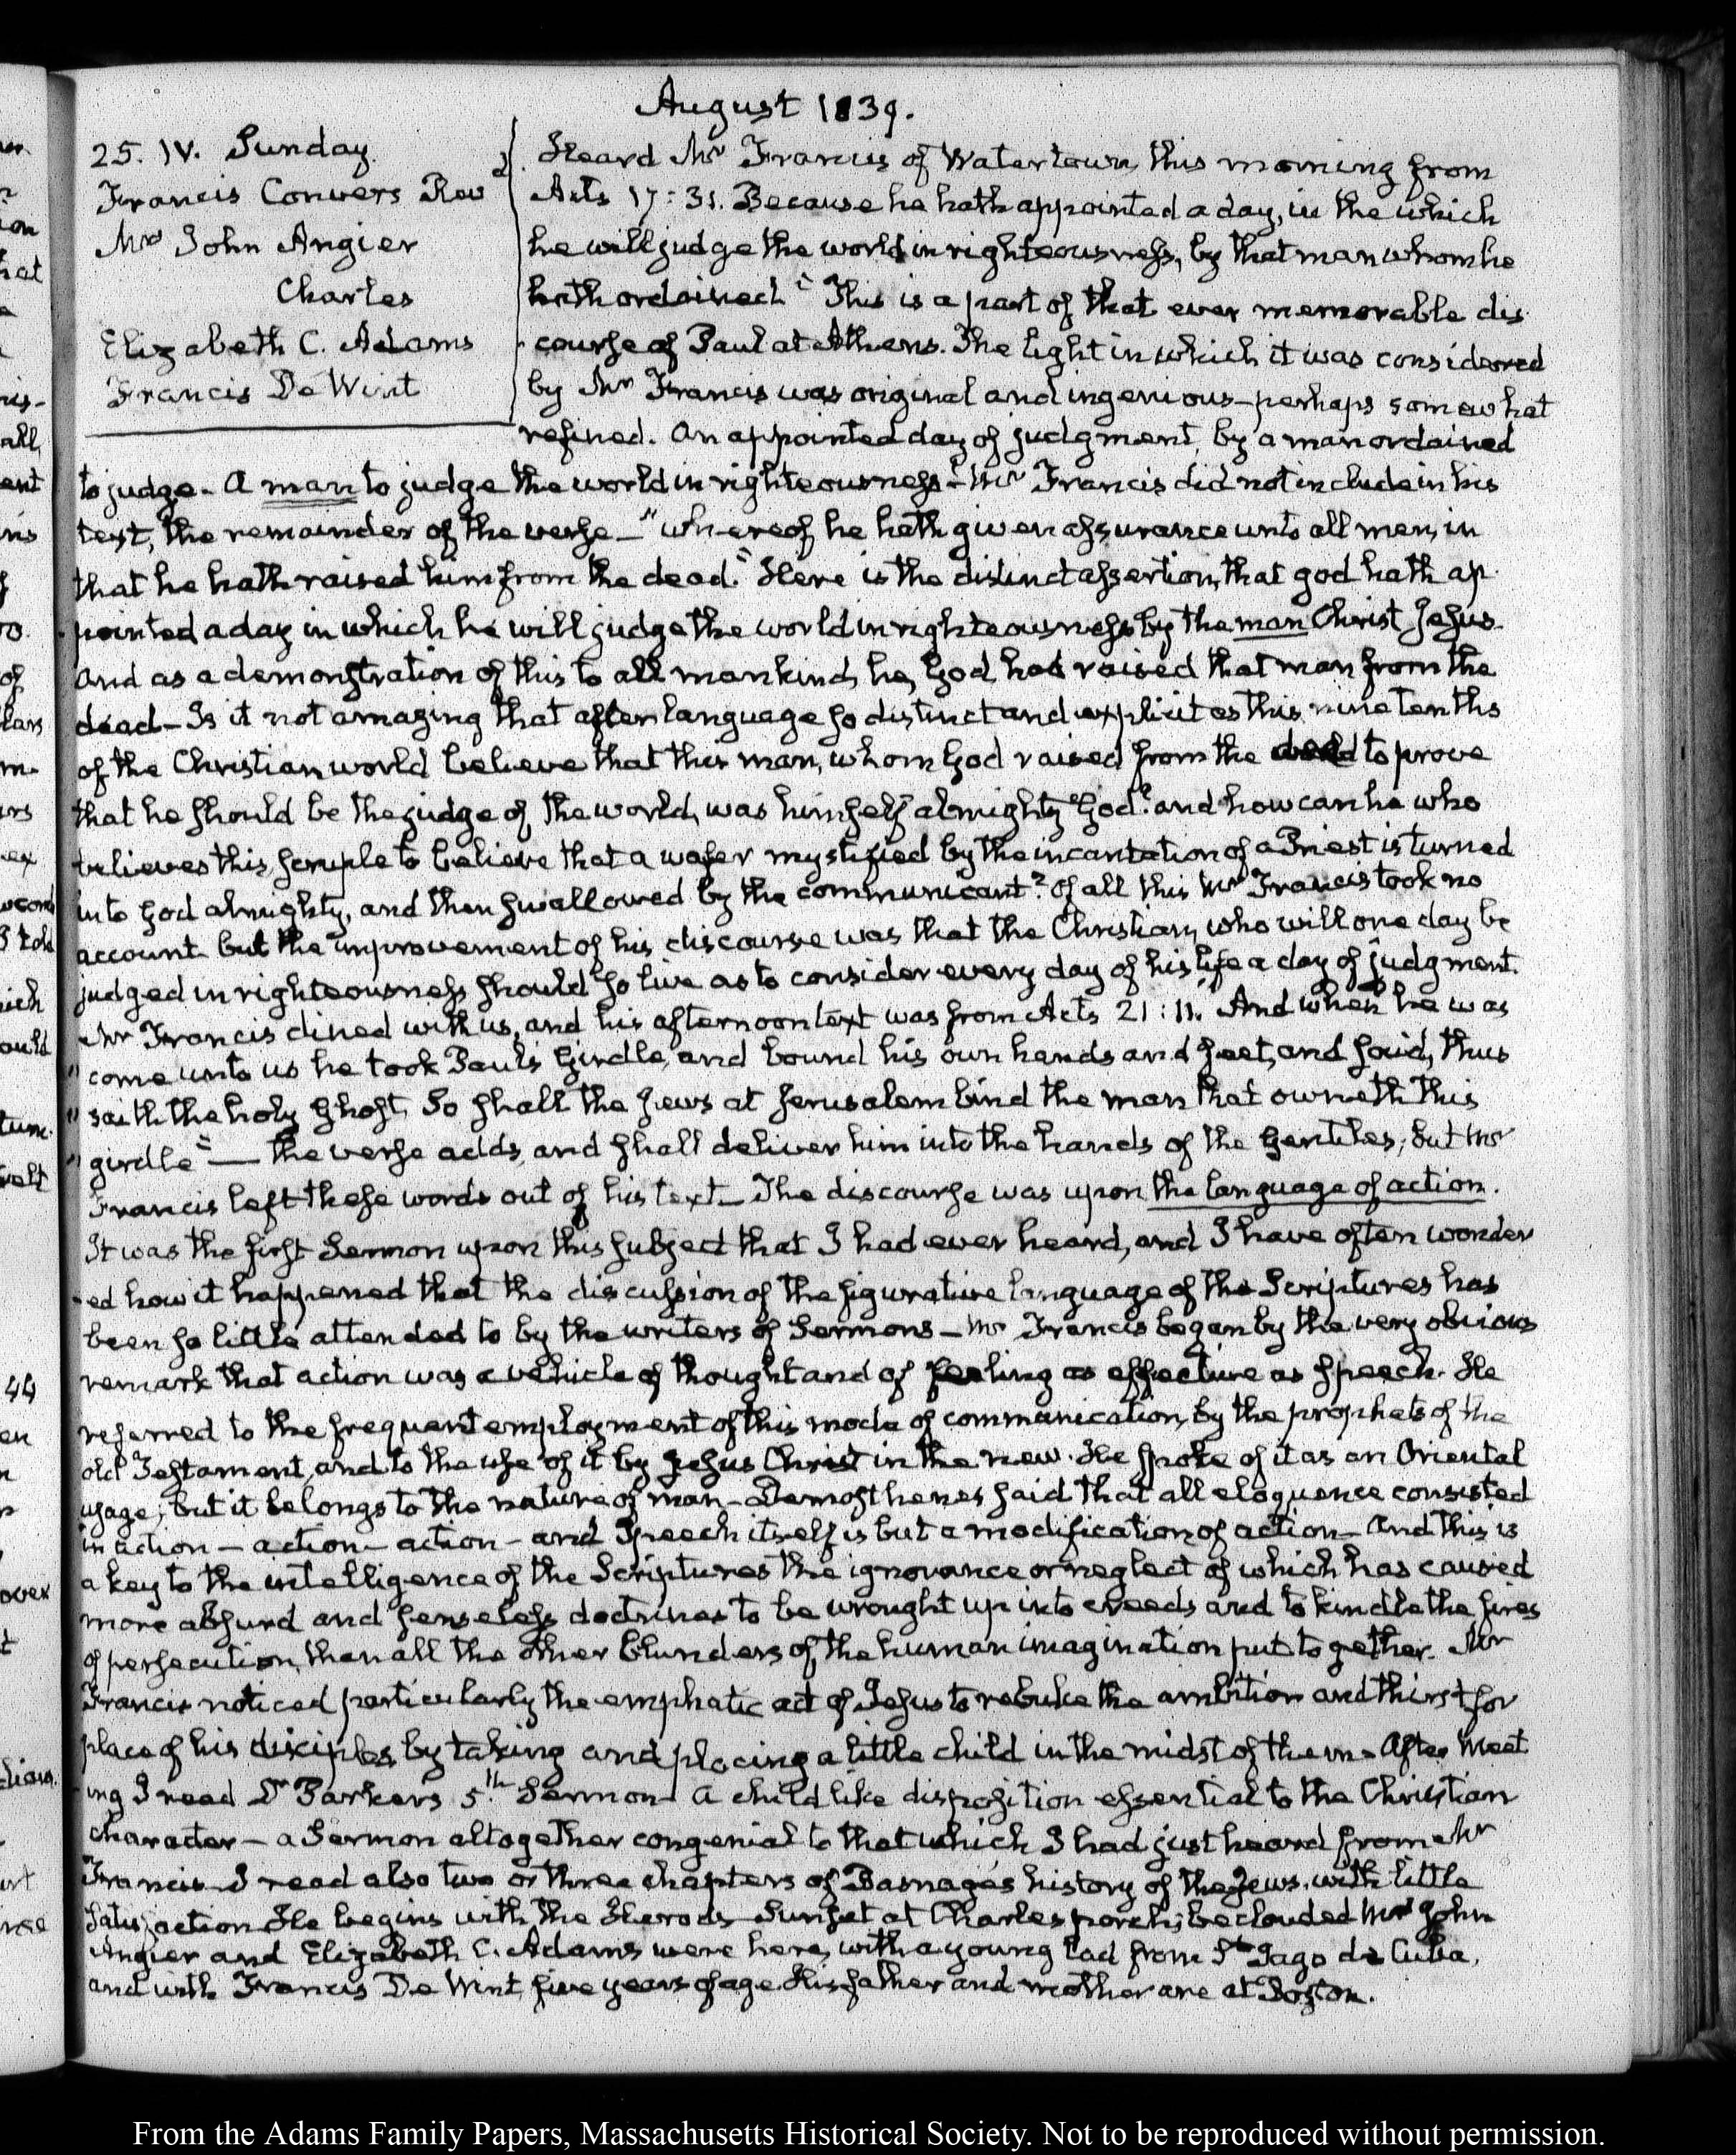 August 1839.
25. IV. Sunday.
Francis Convers Revd
Mrs John Angier
Charles
Elizabeth C. Adams
Francis De Wint
Heard Mr Francis of Watertown this morning from
Acts 17:31. Because he hath appointed a day, in the which
he will judge the world in righteousness, by that man whom he
hath ordained" This is a part of that ever memorable dis
course of Paul at Athens. The light in which it was considered
by Mr Francis was original and ingenious—perhaps somewhat
refined. An appointed day of judgment, by a man ordained
to judge—A man to judge the world in righteousness—Mr Francis did not include in his
text, the remainder of the verse—"whereof he hath given assurance unto all men, in
that he hath raised him from the dead." Here is the distinct assertion, that god hath ap
pointed a day in which he will judge the world in righteousness by the man Christ Jesus.
And as a demonstration of this to all mankind, he, God, had raised that man from the
dead—Is it not amazing that after language so distinct and explicit as this, nine tenths
of the Christian world believe that this man, whom God raised from the dead to prove
that he should be the judge of the world, was himself almighty God? and how can he who
believes this, scruple to believe that a wafer mystified by the incantation of a Priest is turned
into God almighty, and then swallowed by the communicant? Of all this Mr Francis took no
account but the improvement of his discourse was that the Christian, who will one day be
judged in righteousness should so live as to consider every day of his life a day of judgment.
Mr Francis dined with us, and his afternoon text was from Acts 21:11. "And when he was
"come unto us he took Paul's girdle, and bound his own hands and feet, and said, thus
"saith the holy Ghost, So shall the Jews at Jerusalem bind the man that owneth this
"girdle"—the verse adds, and shall deliver him into the hands of the Gentiles; but Mr
Francis left these words out of his text—The discourse was upon the language of action.
It was the first Sermon upon this subject that I had ever heard, and I have often wonder
-ed how it happened that the discussion of the figurative language of the Scriptures has
been so little attended to by the writers of Sermons—Mr Francis began by the very obvious
remark that action was a vehicle of thought and of feeling as effective as speech. He
referred to the frequent employment of this mode of communication, by the prophets of the
old Testament, and to the use of it by Jesus Christ in the new. He spoke of it as an Oriental
usage; but it belongs to the nature of man—Demosthenes said that all eloquence consisted
in action—action—action—and Speech itself is but a modification of action—And this is
a key to the intelligence of the Scriptures the ignorance or neglect of which has caused
more absurd and senseless doctrines to be wrought up into creeds and to kindle the fires
of persecution, than all the other blunders of the human imagination put together. Mr
Francis noticed particularly the emphatic act of Jesus to rebuke the ambition and thirst for
place of his disciples by taking and placing a little child in the midst of them—After Meet
ing I read Dr Parker's 5th Sermon—A child like disposition essential to the Christian
character—a Sermon altogether congenial to that which I had just heard from Mr
Francis—I read also two or three chapters of Basnage's history of the Jews, with little
satisfaction He begins with the Herods—Sunset at Charles's porch; beclouded Mrs John
Angier and Elizabeth C. Adams were here, with a young lad from St Iago de Cuba,
and with Francis De Wint, five years of age. His father and mother are at Boston.
From the Adams Family Papers, Massachusetts Historical Society. Not to be reproduced without permission.